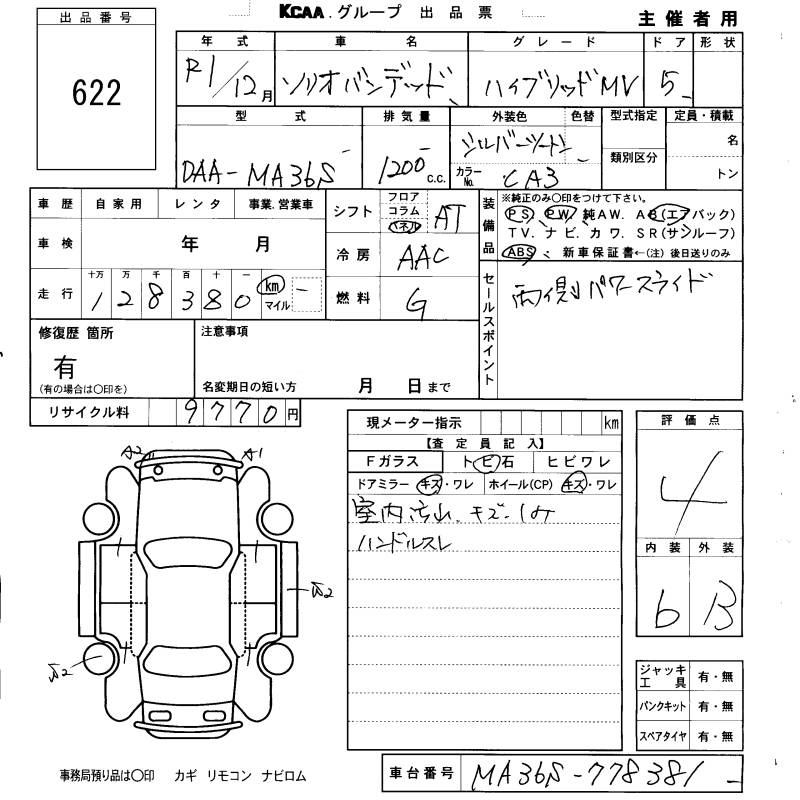 KCAA.グループ 出品票
主催者用
出品番号
622
年式 車名 グレード ドア 形状
R1/12月 ソリオバンデッド ハイブリッドMV 5
型式 排気量 外装色 色替 型式指定 定員・積載
DAA-MA36S 1200c.c. シルバーツートン 類別区分 名
カラーNo. CA3 トン
車歴 自家用 レンタ 事業.営業車
車検 年 月
走行 十万 万 千 百 十 一
128380 km マイル
シフト フロア コラム パネル AT
冷房 AAC
燃料 G
装備品 ※純正のみ〇印をつけて下さい。
PS、PW、純AW. AB(エアバック)
TV. ナビ. カワ. SR(サンルーフ)
ABS、新車保証書←(注)後日送りのみ
セールスポイント 両側パワースライド
修復歴 箇所 注意事項
有
(有の場合は〇印を) 名変期日の短い方 月 日まで
リサイクル料 9770円
現メーター指示 km
【査定員記入】
Fガラス トビ石 ヒビワレ
ドアミラー キズ・ワレ ホイール(CP) キズ・ワレ
室内汚れ.キズ.
ハンドルスレ
評価点
4
内装 外装
b B
A2 A1
ジャッキ工具 有・無
パンクキット 有・無
スペアタイヤ 有・無
事務局預り品は〇印 カギ リモコン ナビロム
車台番号 MA36S-778381